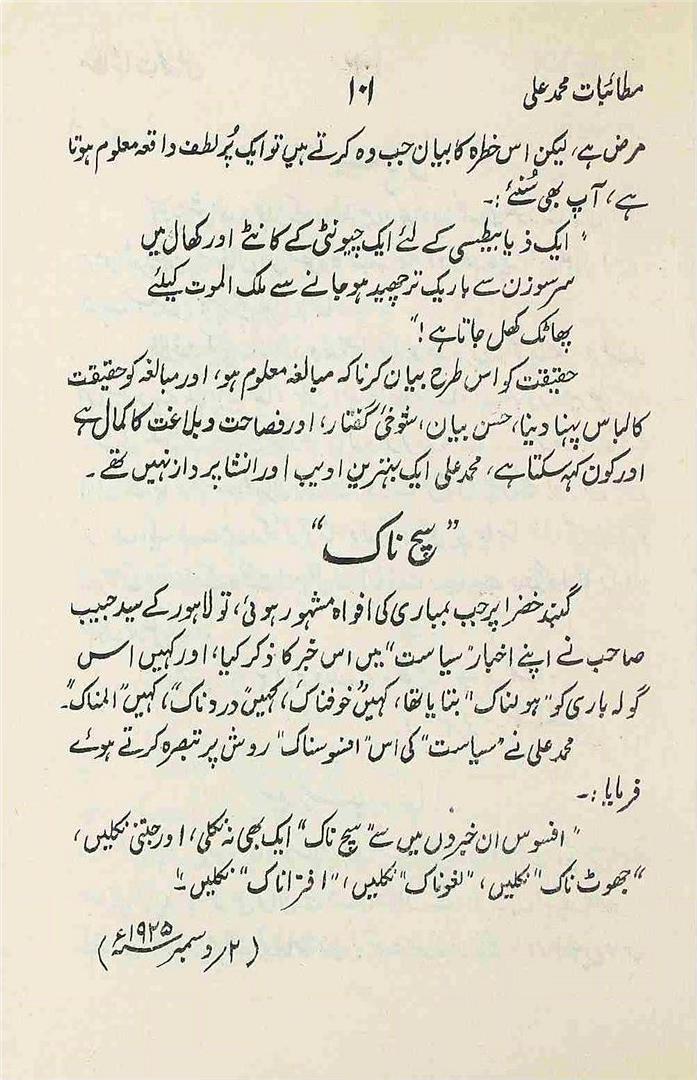 مطائبات محمد علی ۱۰۱
مرض ہے، لیکن اس خطرہ کا بیان جب وہ کرتے ہیں تو ایک پُر لطف واقعہ معلوم ہوتا
ہے، آپ بھی سُنئے :۔
" ایک ذیابیطسی کے لئے ایک چیونٹی کے کانٹے اور کھال میں
سرسوزن سے باریک تر چھید ہو جانے سے ملک الموت کیلئے
پھاٹک کھل جاتا ہے ! "
حقیقت کو اس طرح بیان کرنا کہ مبالغہ معلوم ہو، اور مبالغہ کو حقیقت
کا لباس پہنا دینا، حسن بیان، شوخئ گفتار، اور فصاحت و بلاغت کا کمال ہے
اور کون کہہ سکتا ہے، محمد علی ایک بہترین ادیب اور انشا پرداز نہیں تھے ۔
" سچ ناک "
گنبد خضرا پر جب بمباری کی افواہ مشہور ہوئی، تو لاہور کے سید حبیب
صاحب نے اپنے اخبار "سیاست" میں اس خبر کا ذکر کیا، اور کہیں اس
گولہ باری کو "ہولناک" بتایا تھا، کہیں "خوفناک"، کہیں "دردناک"، کہیں "المناک"۔
محمد علی نے "سیاست" کی اس "افسوسناک" روش پر تبصرہ کرتے ہوئے
فرمایا :۔
" افسوس ان خبروں میں سے "سچ ناک" ایک بھی نہ نکلی، اور جتنی نکلیں،
"جھوٹ ناک" نکلیں، "لغوناک" نکلیں، "افترا ناک" نکلیں ۔"
( ۲ر دسمبر ۱۹۲۵ء )